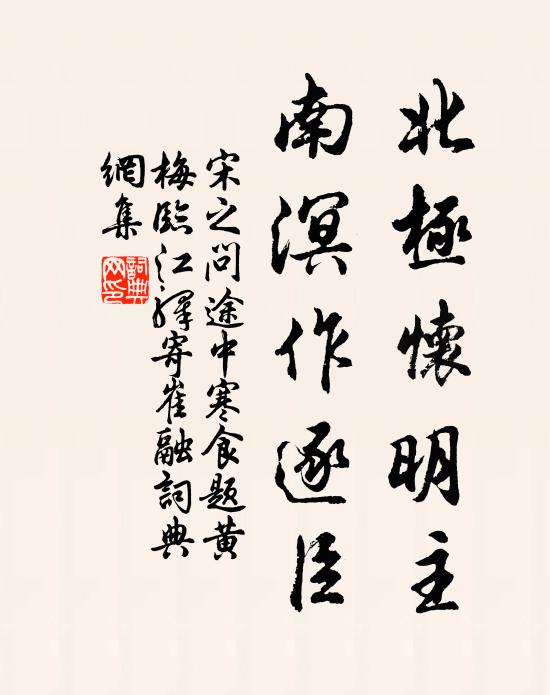 北極懷明主
南溟作逐臣
宋之问途中寒食题黄
梅臨江驛寄崔融詞典
網集
詞典
网印